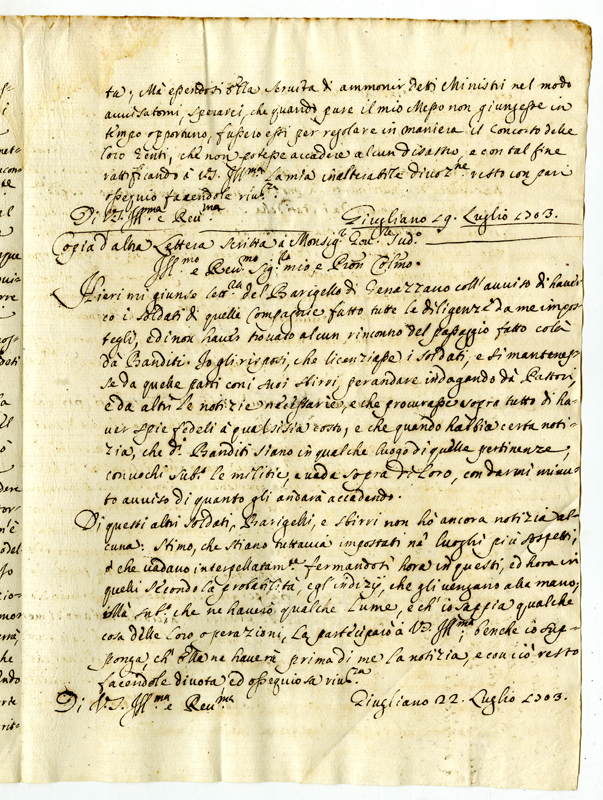 tu; Mà essendosi ella servita di ammonir detti Ministri nel modo
avvisatomi, sperarei, che quando pure il mio Messo non giungesse in
tempo opportuno, fussero essi per regolare in maniera il Concorto delle
loro genti, che non potesse accadere alcun disastro, e con tal fine
rattificando à V.S. Ill.ma la mia inalterabile divoz.ne resto con pari
ossequio facendole riu.za
Di V.S. Ill.ma e Reu.ma Giugliano 19. Luglio 1703.
Copia d'altra Lettera scritta à Monsig.r
Ill.mo e Reu.mo Sig.re mio e Pron Col.mo
Hieri mi giunse lett.ra del Barigello di Genazzano coll'avviso di haver
co i soldati di quelle Compagnie fatto tutte le diligenze da me impos-
tegli, ed non haver trovato alcun rinconno del passaggio fatto colà
dà Banditi. Io gli risposi, che licenziasse i soldati, e si mantenes-
se da quelle parti con i suoi sbirri, per andare indagando dà Pastori,
e da altri le notizie necessarie, e che procurasse sopra tutto di ha-
ver spie fedeli à qualsisia costo, e che quando habbia certa noti-
zia, che d.i Banditi siano in qualche luogo di quelle pertinenze,
convochi sub.o le militie, e vada sopra di loro, con darmi minu-
to avviso di quanto gli andarà accadendo.
Di questi altri soldati, Barigelli, e sbirri non hò ancora notizia al-
cuna: stimo, che stiano tuttavia impostati nè luoghi più sospetti,
ò che vadano fermandosi hora in questi, ed hora in
quelli secondo la probabilità, e gl'indizij, che gli vengano alla mano;
mà sub.o che ne haverò qualche lume, e ch'io sappia qualche
cosa delle loro operazioni, la parteciparò à V.S. Ill.ma; benche io sup-
ponga, ch'ella ne haverà prima di me la notizia, e con ciò resto
facendole divota ed ossequiosa riu.za
Di V.S. Ill.ma e Reu.ma Giugliano 22. Luglio 1703.